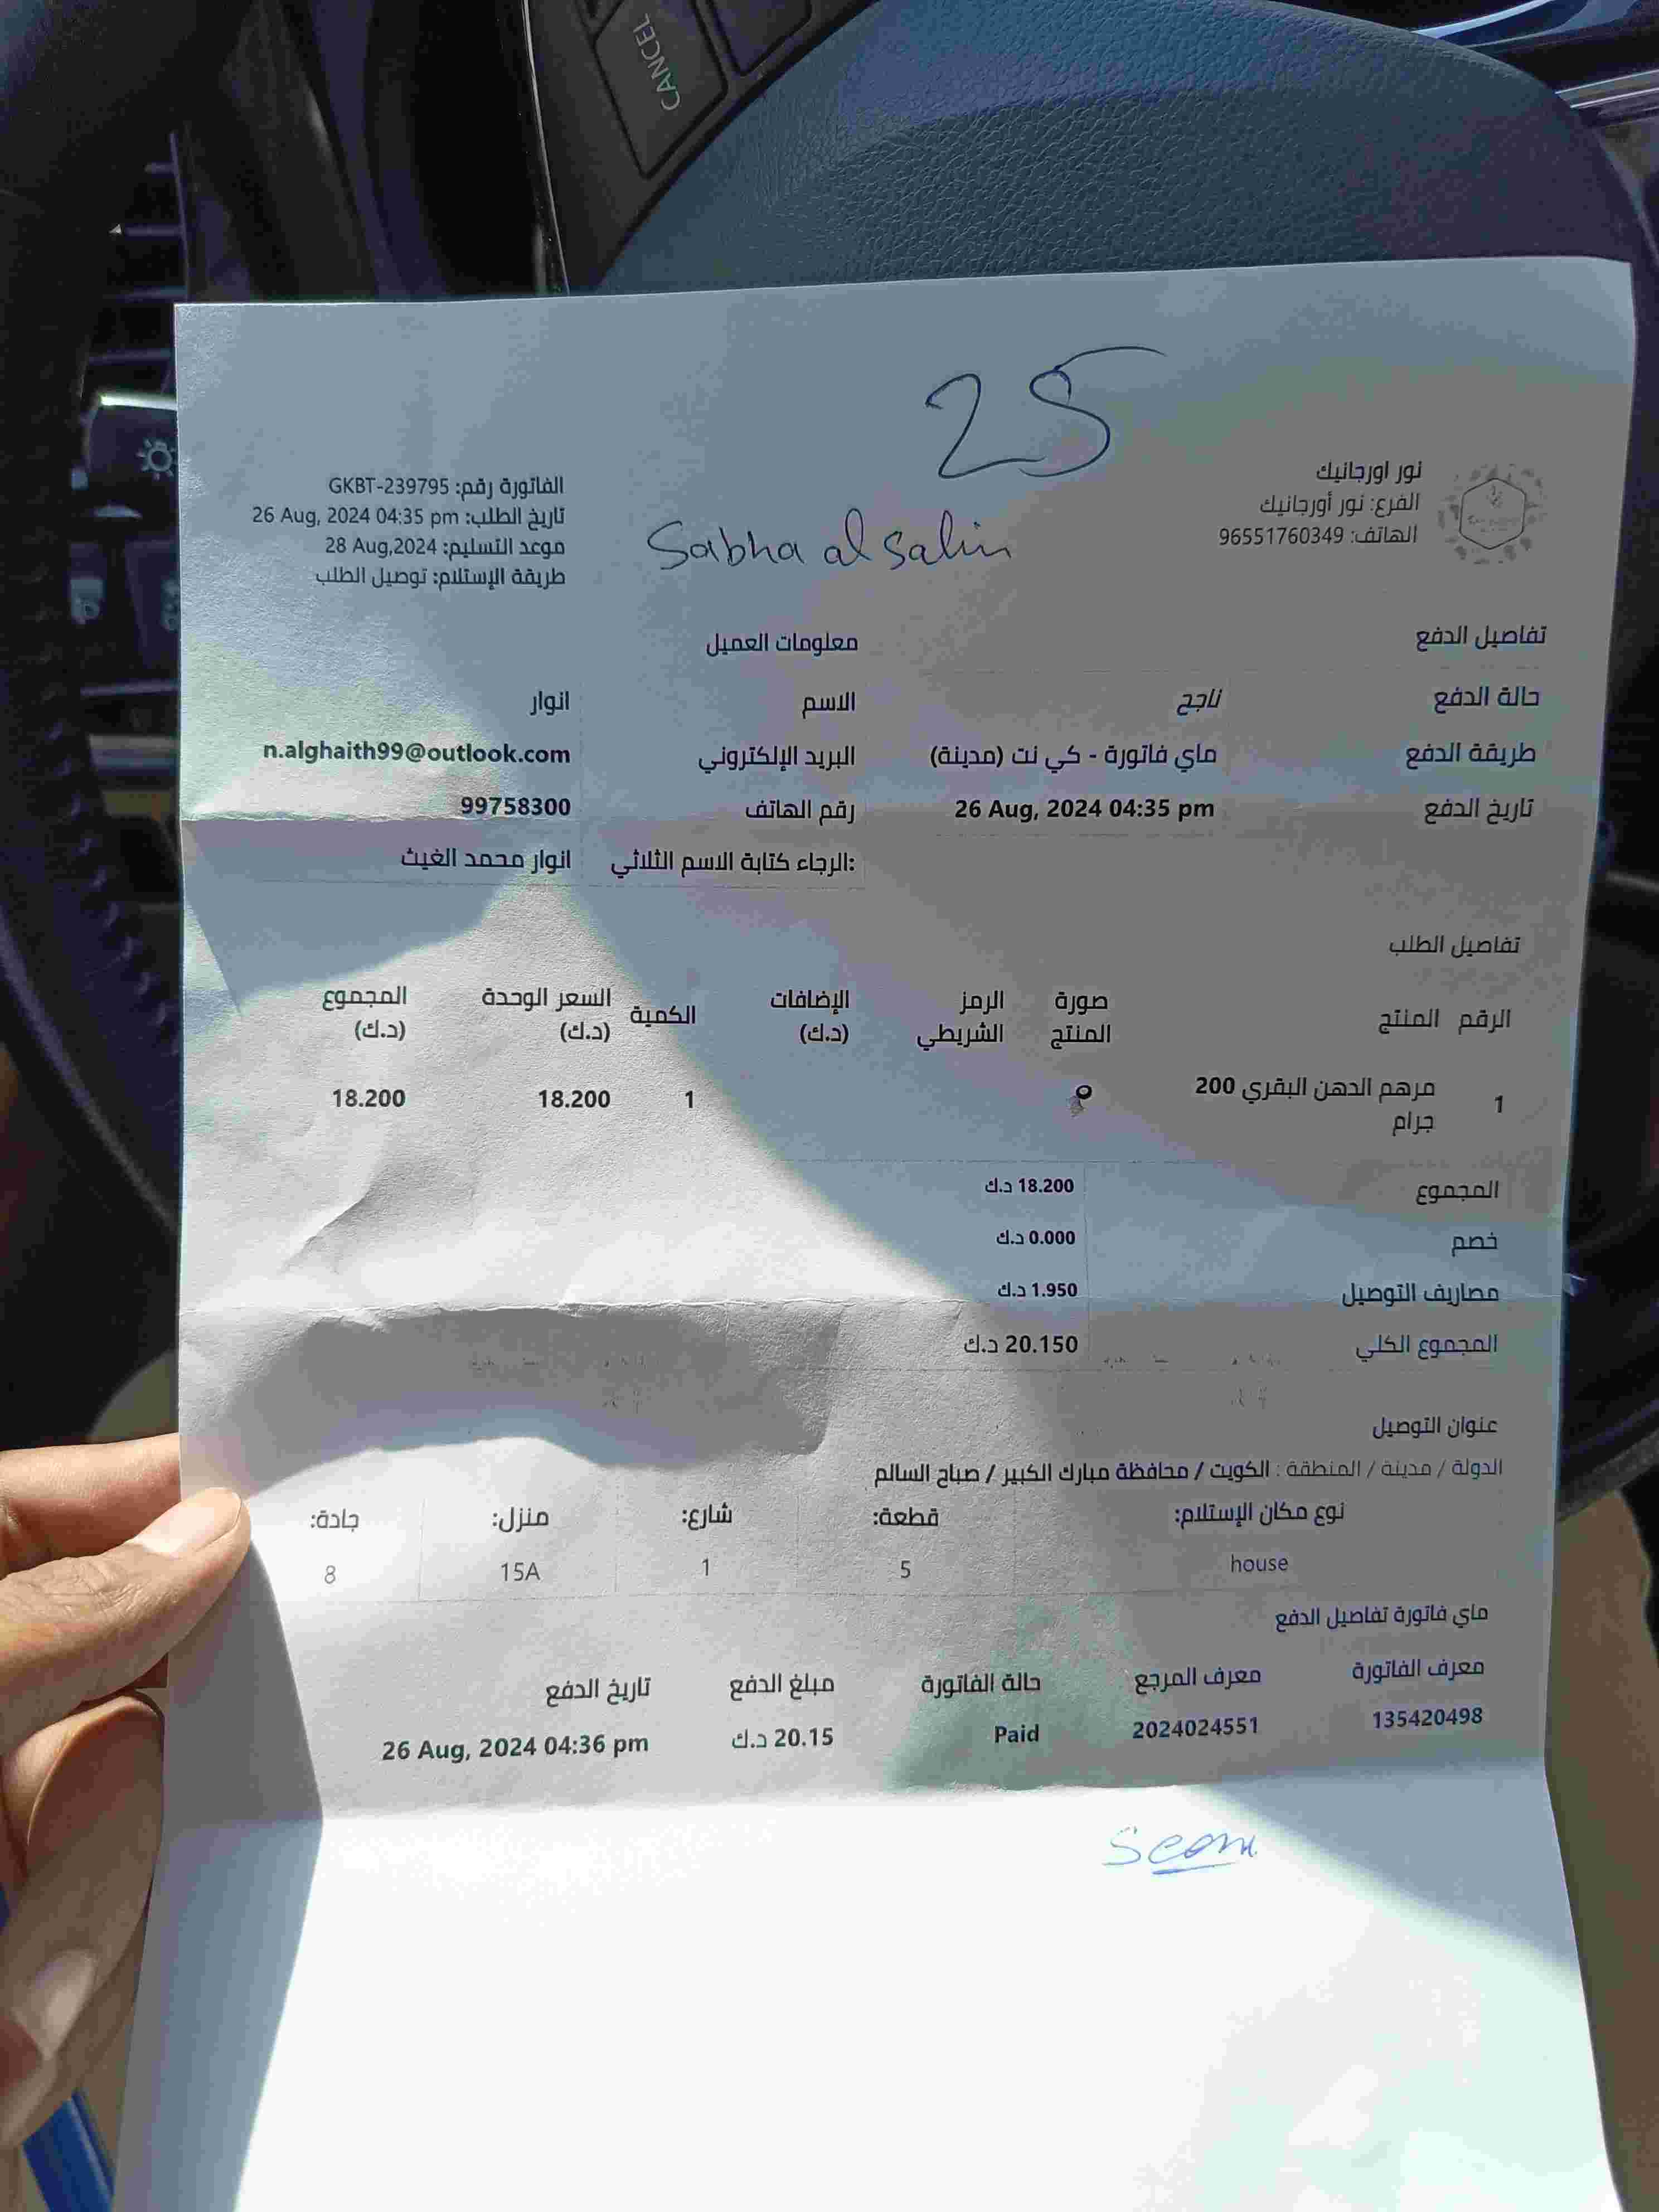 CANCEL
25
نور اورجانيك
الفرع: نور أورجانيك
الهاتف: 96551760349
Sabha al salim
الفاتورة رقم: GKBT-239795
تاريخ الطلب: 26 Aug, 2024 04:35 pm
موعد التسليم: 28 Aug,2024
طريقة الإستلام: توصيل الطلب
تفاصيل الدفع
حالة الدفع ناجح
طريقة الدفع ماي فاتورة - كي نت (مدينة)
تاريخ الدفع 26 Aug, 2024 04:35 pm
معلومات العميل
الاسم انوار
البريد الإلكتروني n.alghaith99@outlook.com
رقم الهاتف 99758300
الرجاء كتابة الاسم الثلاثي: انوار محمد الغيث
تفاصيل الطلب
الرقم المنتج صورة المنتج الرمز الشريطي الإضافات (د.ك) الكمية السعر الوحدة (د.ك) المجموع (د.ك)
1 مرهم الدهن البقري 200 جرام 1 18.200 18.200
المجموع 18.200 د.ك
خصم 0.000 د.ك
مصاريف التوصيل 1.950 د.ك
المجموع الكلي 20.150 د.ك
عنوان التوصيل
الدولة / مدينة / المنطقة : الكويت / محافظة مبارك الكبير / صباح السالم
نوع مكان الإستلام: قطعة: شارع: منزل: جادة:
house 5 1 15A 8
ماي فاتورة تفاصيل الدفع
معرف الفاتورة معرف المرجع حالة الفاتورة مبلغ الدفع تاريخ الدفع
135420498 2024024551 Paid 20.15 د.ك 26 Aug, 2024 04:36 pm